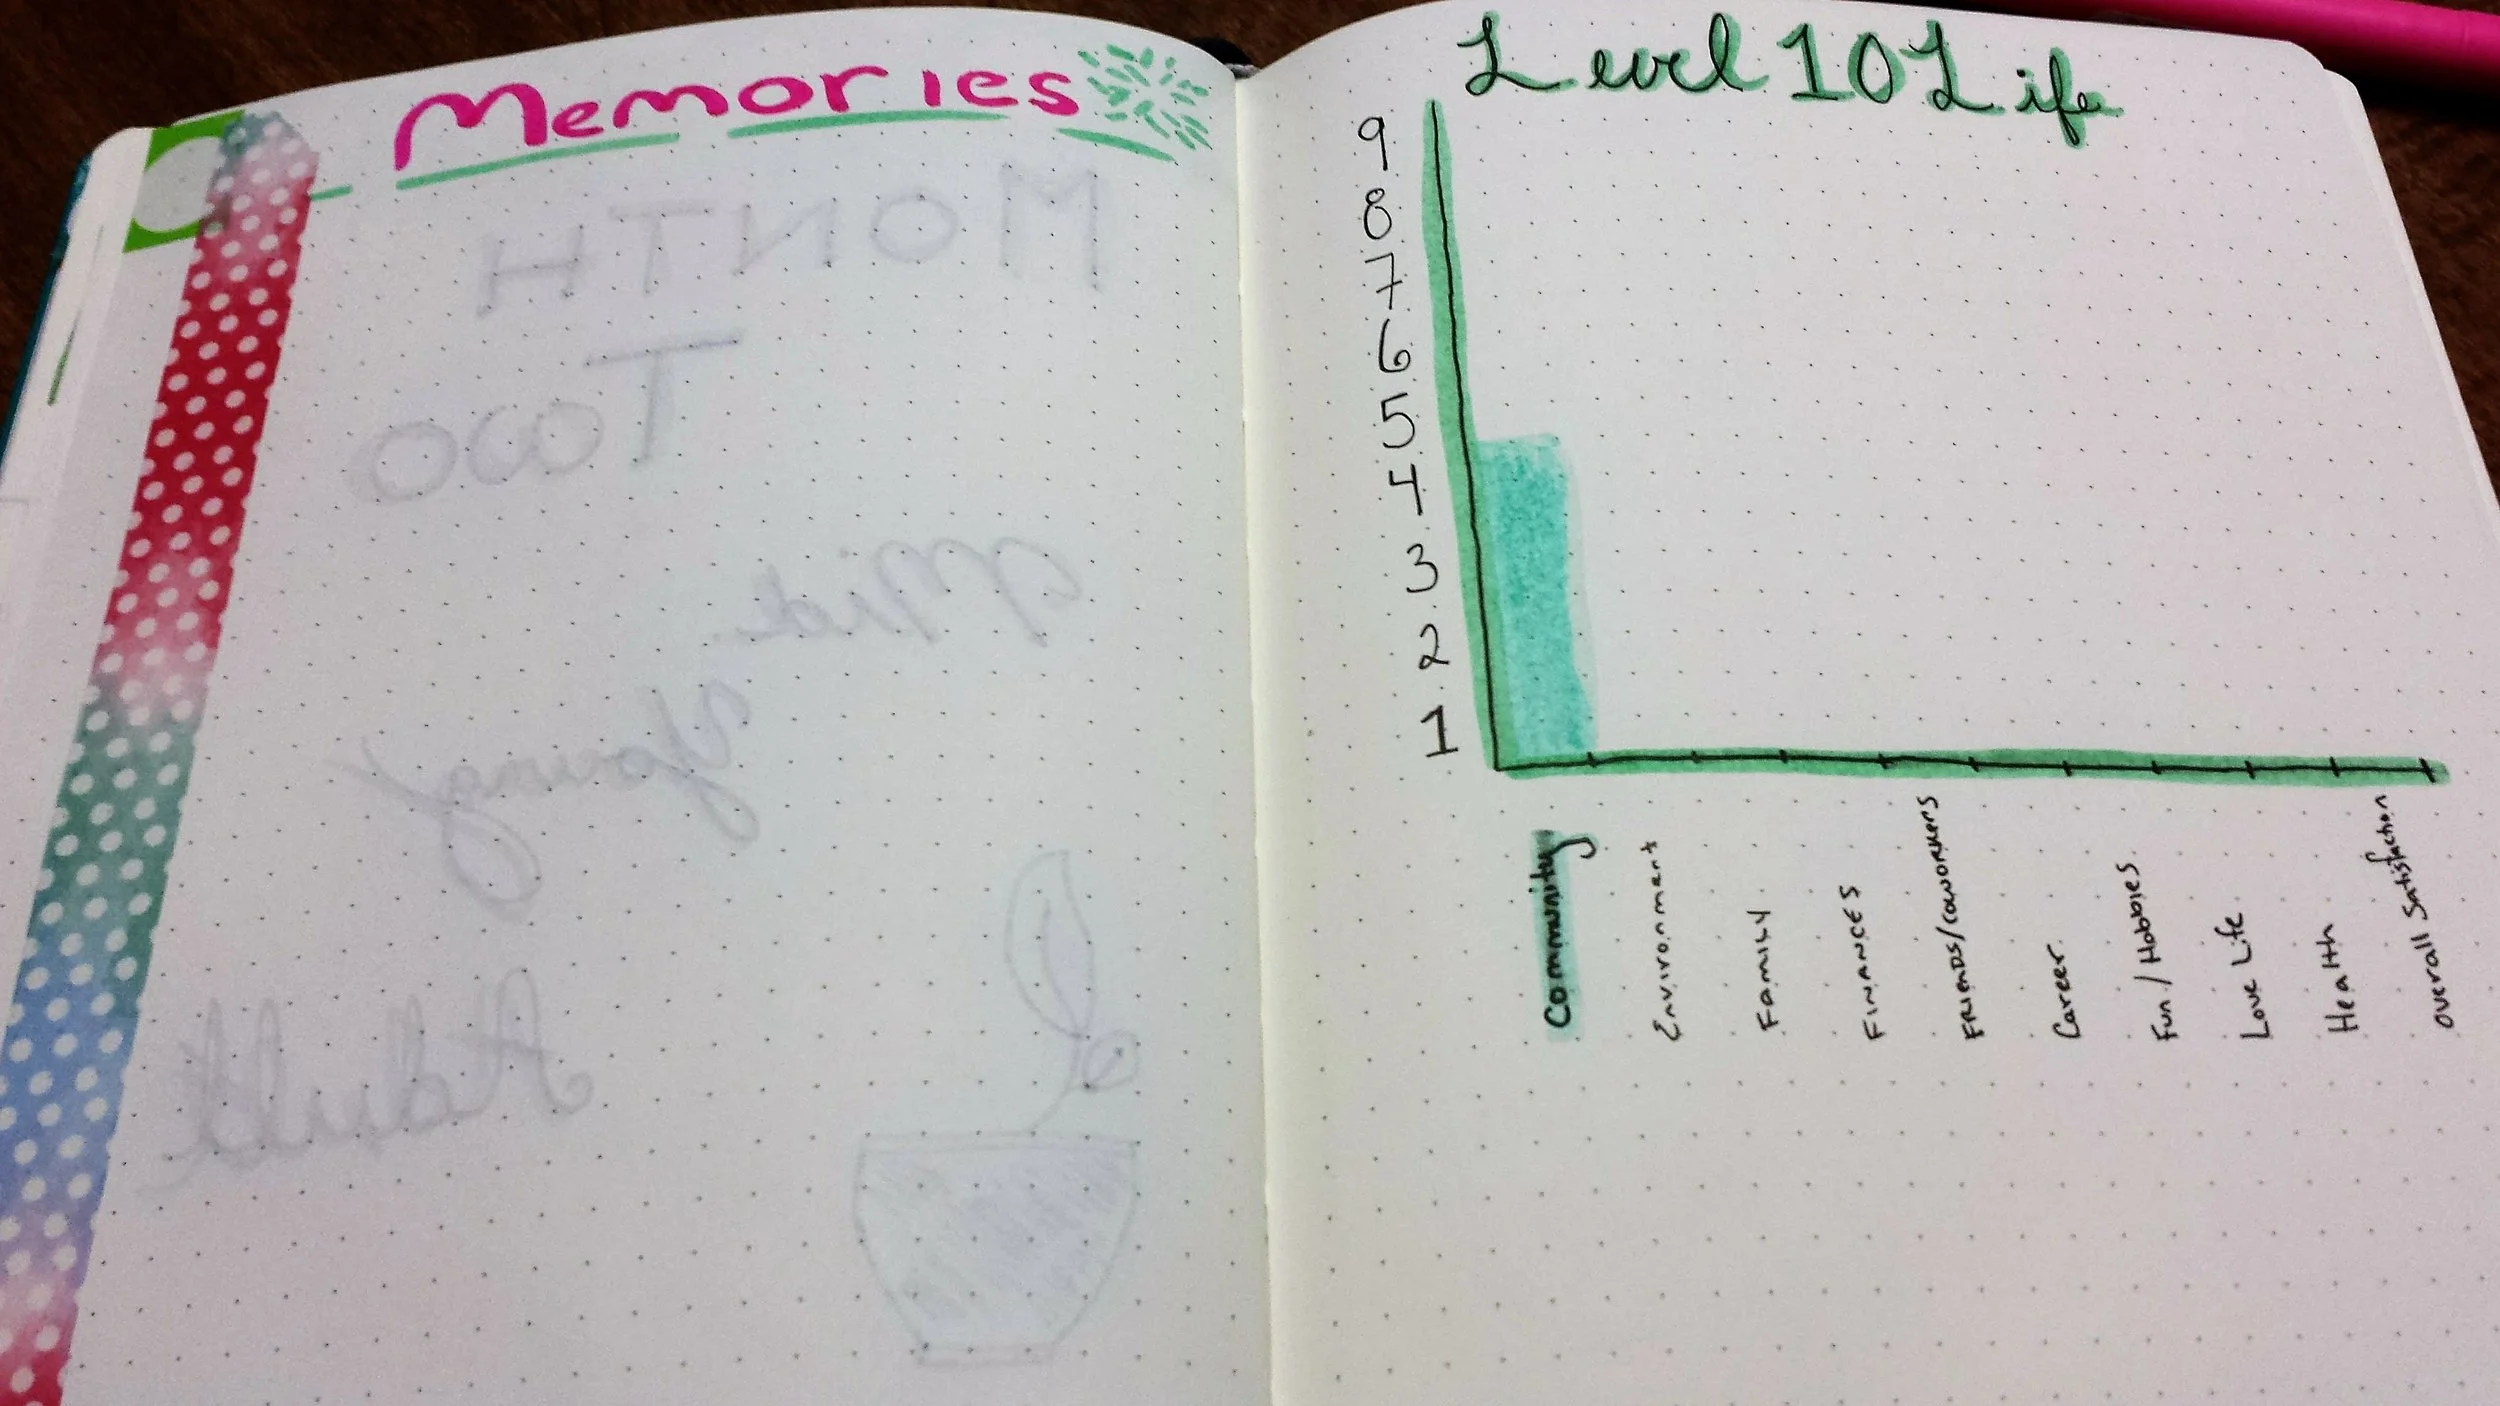 Memories
MONTH
TWO
Mid
Young
Adult
Level 10 Life
9
8
7
6
5
4
3
2
1
Community
Environment
Family
Finances
Friends/Coworkers
Career
Fun/Hobbies
Love Life
Health
Overall Satisfaction